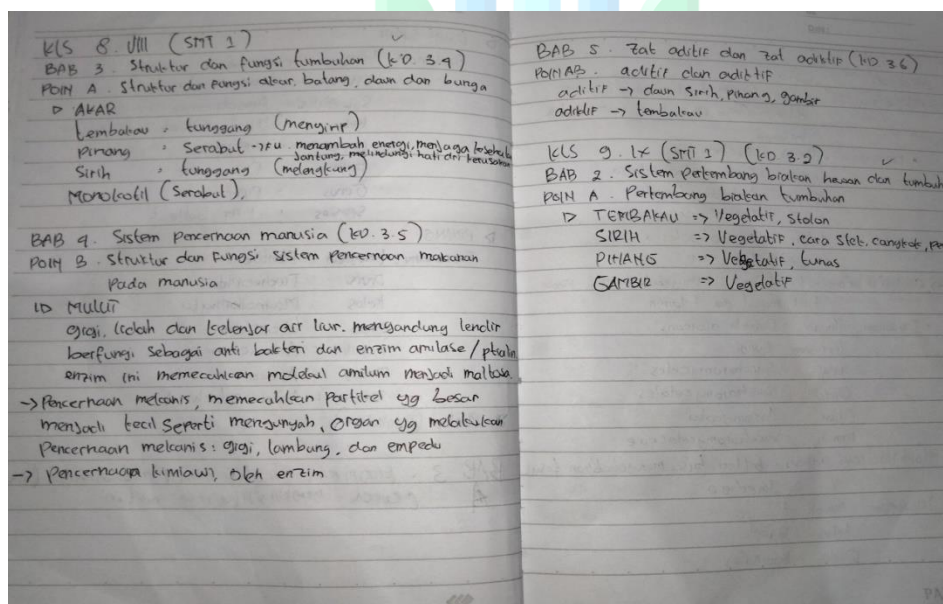 KLS 8. VIII (SMT 1)
BAB 3. Struktur dan fungsi tumbuhan (KD. 3.4)
POIN A. Struktur dan fungsi akar, batang, daun dan bunga
AKAR
Tembakau = tunggang (menyirip)
Pinang = Serabut → fu. menambah energi, menjaga kesehat
Jantung, melindungi hati dri kerusakan
Sirih = tunggang (melengkung)
Monokotil (Serabut),
BAB 4. Sistem Pencernaan manusia (KD. 3.5)
POIN B. Struktur dan Fungsi Sistem Pencernaan makanan
Pada manusia
Mulut
gigi, lidah dan kelenjar air liur. mengandung lendir
berfungi sebagai anti bakteri dan enzim amilase / ptialin
enzim ini memecahkan molekul amilum menjadi maltosa.
→ Pencernaan mekanis, memecahkan Partikel yg besar
menjadi kecil Seperti mengunyah, organ yg melakukan
Pencernaan mekanis : gigi, lambung, dan empedu
→ Pencernaan kimiawi, oleh enzim
BAB 5. Zat aditif dan zat adiktif (KD 3.6)
POIN AB. aditif dan adiktif
aditif → daun sirih, pinang, gambir
adiktif → tembakau
KLS 9. IX (SMT 1) (KD 3.2)
BAB 2. Sistem Perkembang biakan hewan dan tumbuh
POIN A. Perkembang biakan tumbuhan
TEMBAKAU => Vegetatif, Stolon
SIRIH => Vegetatif, cara Stek, cangkok,
PINANG => Vegetatif, tunas
GAMBIR => Vegetatif